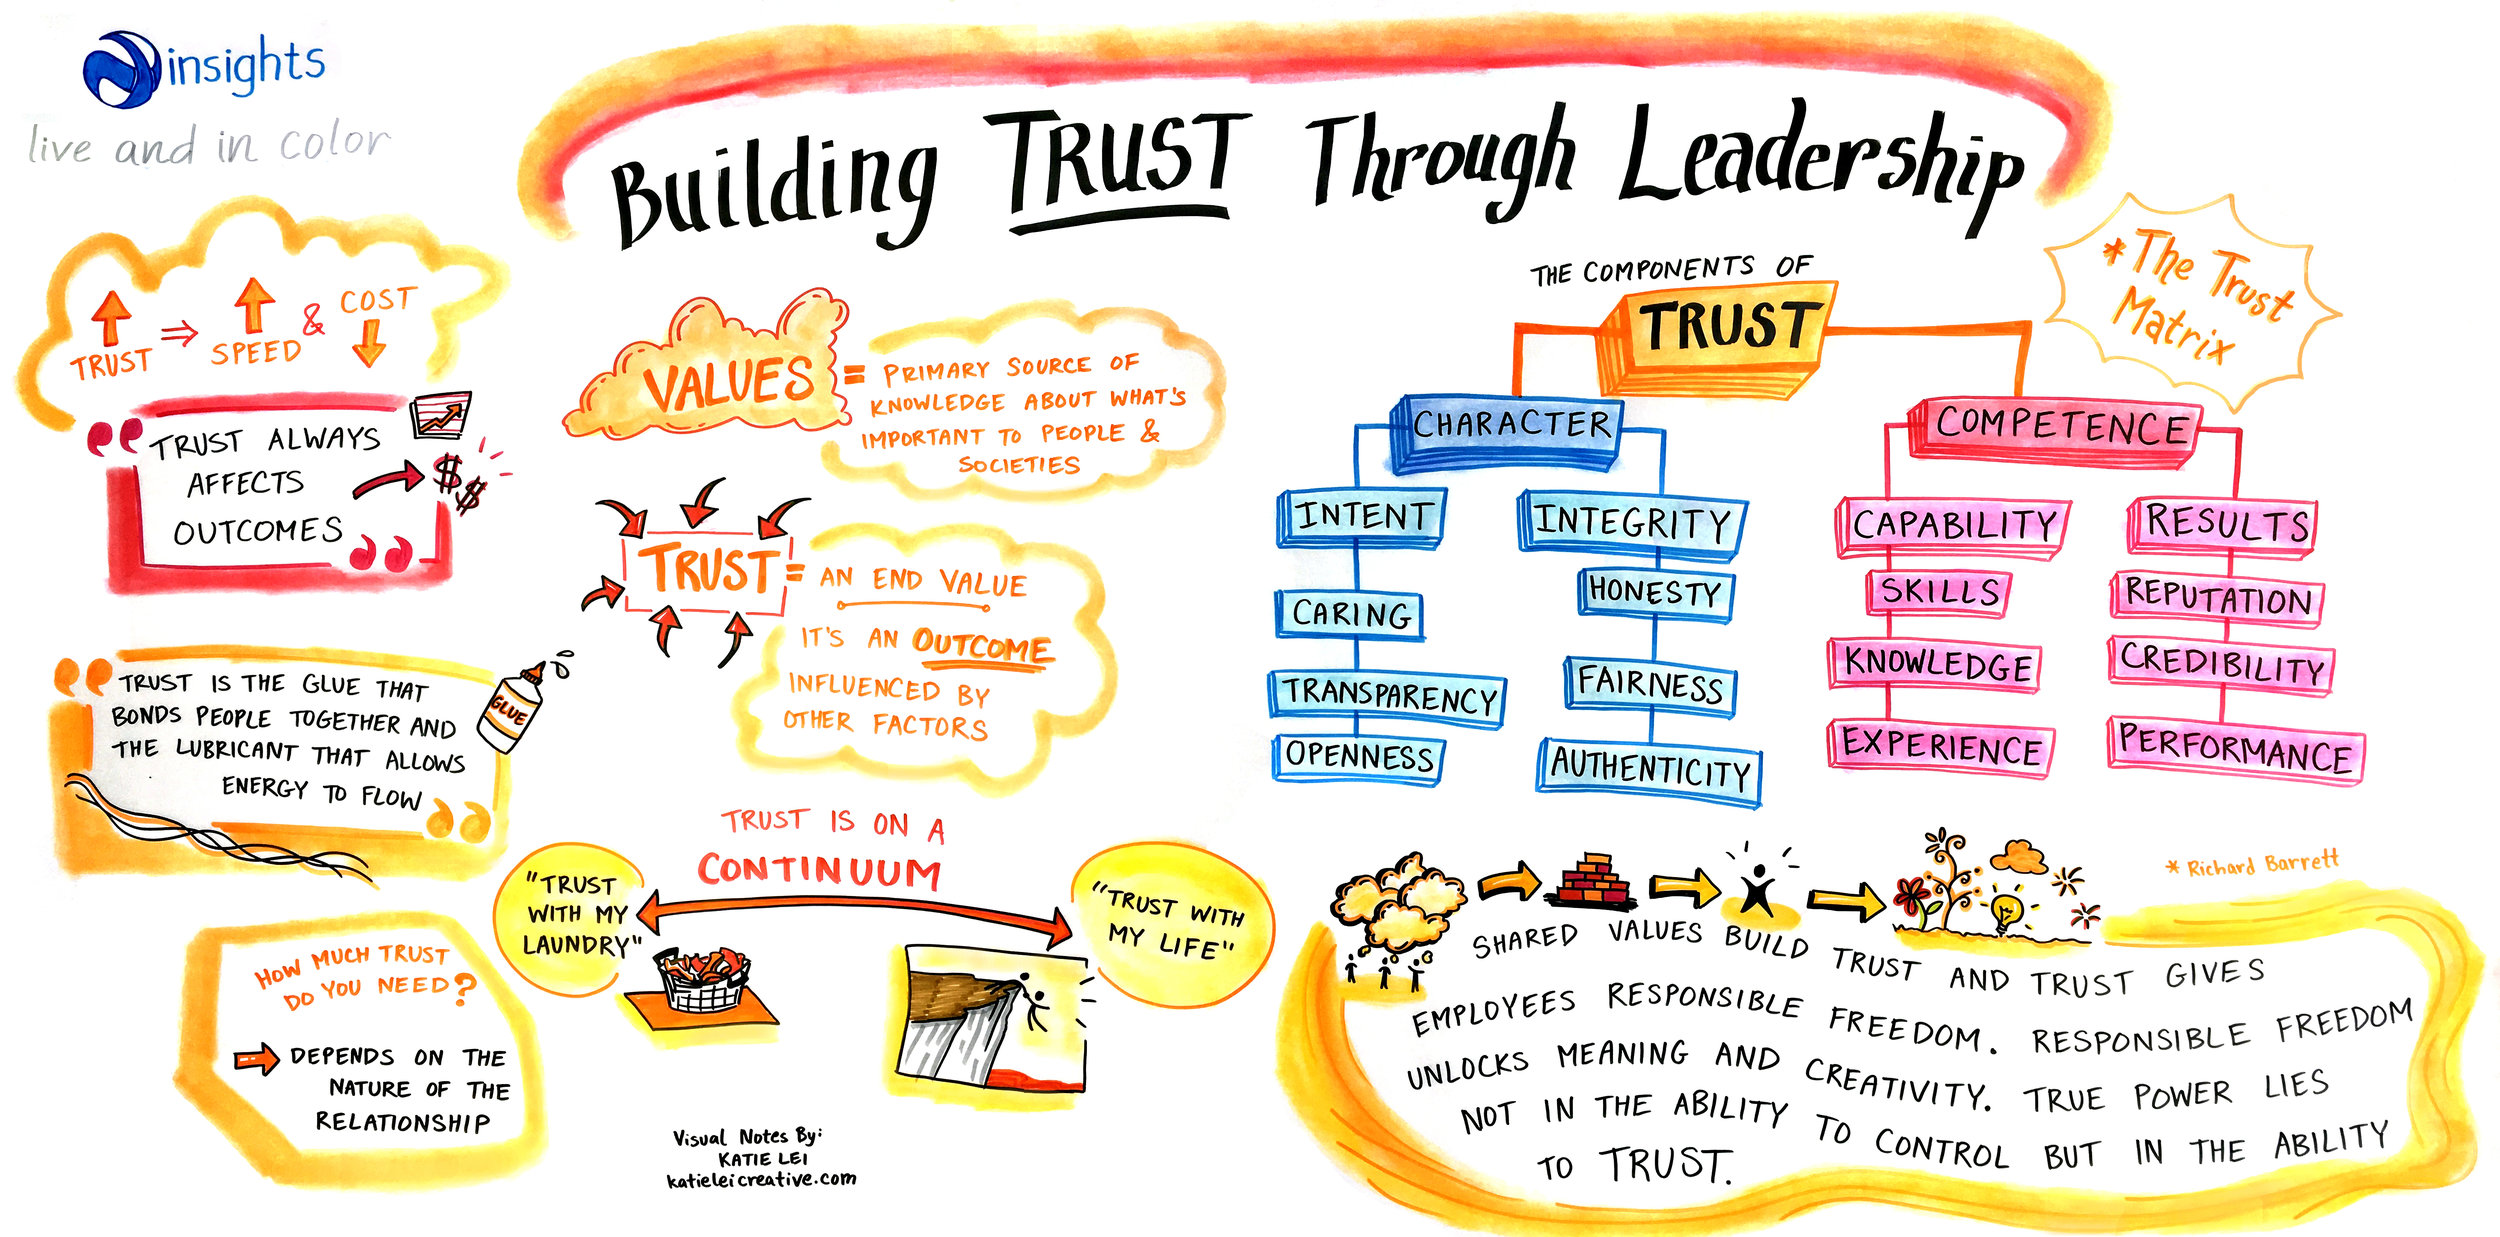 insights
live and in color
Building TRUST Through Leadership
TRUST ⇒ SPEED & COST
TRUST ALWAYS
AFFECTS
OUTCOMES
$$
TRUST IS THE GLUE THAT
BONDS PEOPLE TOGETHER AND
THE LUBRICANT THAT ALLOWS
ENERGY TO FLOW
GLUE
HOW MUCH TRUST
DO YOU NEED?
DEPENDS ON THE
NATURE OF THE
RELATIONSHIP
VALUES = PRIMARY SOURCE OF
KNOWLEDGE ABOUT WHAT'S
IMPORTANT TO PEOPLE &
SOCIETIES
TRUST = AN END VALUE
IT'S AN OUTCOME
INFLUENCED BY
OTHER FACTORS
TRUST IS ON A
CONTINUUM
"TRUST
WITH MY
LAUNDRY"
"TRUST WITH
MY LIFE"
Visual Notes By:
KATIE LEI
katieleicreative.com
THE COMPONENTS OF
TRUST
*The Trust
Matrix
CHARACTER
INTENT
CARING
TRANSPARENCY
OPENNESS
INTEGRITY
HONESTY
FAIRNESS
AUTHENTICITY
COMPETENCE
CAPABILITY
SKILLS
KNOWLEDGE
EXPERIENCE
RESULTS
REPUTATION
CREDIBILITY
PERFORMANCE
* Richard Barrett
SHARED VALUES BUILD TRUST AND TRUST GIVES
EMPLOYEES RESPONSIBLE FREEDOM. RESPONSIBLE FREEDOM
UNLOCKS MEANING AND CREATIVITY. TRUE POWER LIES
NOT IN THE ABILITY TO CONTROL BUT IN THE ABILITY
TO TRUST.